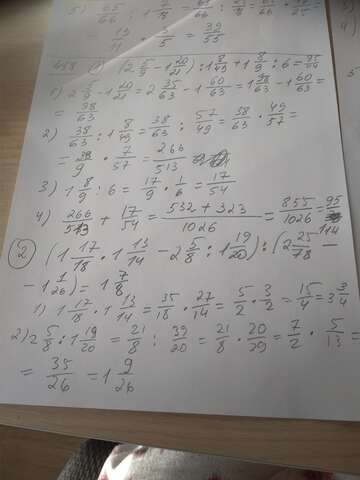 5) 65/66 : 1 7/18 = 65/66 :
19/11 · 3/5 = 39/55
458 ① (2 5/9 - 1 20/21) : 1 8/49 + 1 8/9 : 6 = 95/114
1) 2 5/9 - 1 20/21 = 2 35/63 - 1 60/63 = 1 98/63 - 1 60/63 =
= 38/63
2) 38/63 : 1 8/49 = 38/63 : 57/49 = 38/63 · 49/57 =
= 38/9 · 7/57 = 266/513
3) 1 8/9 : 6 = 17/9 · 1/6 = 17/54
4) 266/513 + 17/54 = 532 + 323/1026 = 855/1026 = 95/114
② (1 17/18 · 1 13/14 - 2 5/8 : 1 19/20) : (2 25/78 -
- 1 1/26) = 1 7/8
1) 1 17/18 · 1 13/14 = 35/18 · 27/14 = 5/2 · 3/2 = 15/4 = 3 3/4
2) 2 5/8 : 1 19/20 = 21/8 : 39/20 = 21/8 · 20/39 = 7/2 · 5/13 =
= 35/26 = 1 9/26